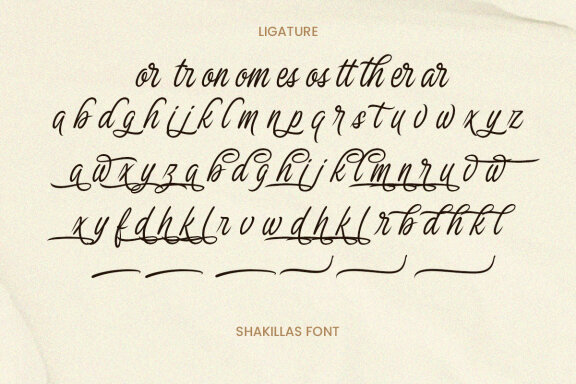 LIGATURE
or tr on om es os tt th er ar
a b d g h i j k l m n p q r s t u v w x y z
a w x y z a b d g h i j k l m n r u v w
x y f d h k l r v w d h k l r b d h k l
SHAKILLAS FONT